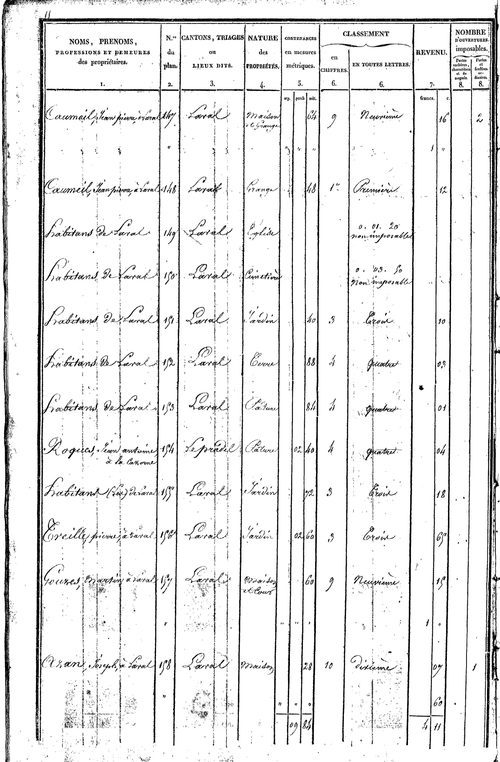 11
NOMS, PRENOMS,
PROFESSIONS ET DEMEURES
des propriétaires.
N.os
du
plan.
CANTONS, TRIAGES
ou
LIEUX DITS.
NATURE
des
PROPRIÉTÉS.
CONTENANCES
en mesures
métriques.
CLASSEMENT
en
CHIFFRES.
EN TOUTES LETTRES.
REVENU.
NOMBRE
D'OUVERTURES
imposables.
1. 2. 3. 4. 5. 6. 6. 7. 8. 8.
francs. c.
Caumeil, Jean pierre, à Laval 147 Laval Maison et Grange 64 9 Neuvième 16 2
" " " 1 "
Caumeil, Jean pierre, à Laval 148 Laval Grange 48 1re Première 12
habitans de Laval 149 Laval Eglise 0. 01. 20 non imposable
habitans de Laval 150 Laval Cimetière 0. 03. 50 non imposable
habitans de Laval 151 Laval Jardin 40 3 Trois 10
habitans de Laval 152 Laval Terre 88 4 quatre 03
habitans de Laval 153 Laval Pâture 84 4 quatre 01
Roques, Jean antoine, à la 154 Le pradel Pâture 02 40 4 quatre 04
habitans (Les) de Laval 155 Laval Jardin 72 3 Trois 18
Treille, pierre, à Laval 156 Laval Jardin 02 60 3 Trois 65
Gouzes, Martin, à Laval 157 Laval Maison et Cour 60 9 Neuvième 15
" " " 1 "
Azan, Joseph, à Laval 158 Laval Maison 28 10 dixième 07 1
" " " 60
09 84 4 11